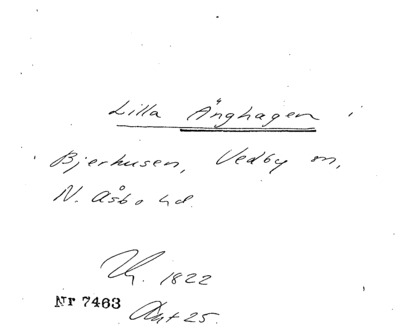 Lilla Änghagen i
Bjerhusen, Vedby sn,
N. Åsbo hd.
1822
Nr 7463
Akt 25.